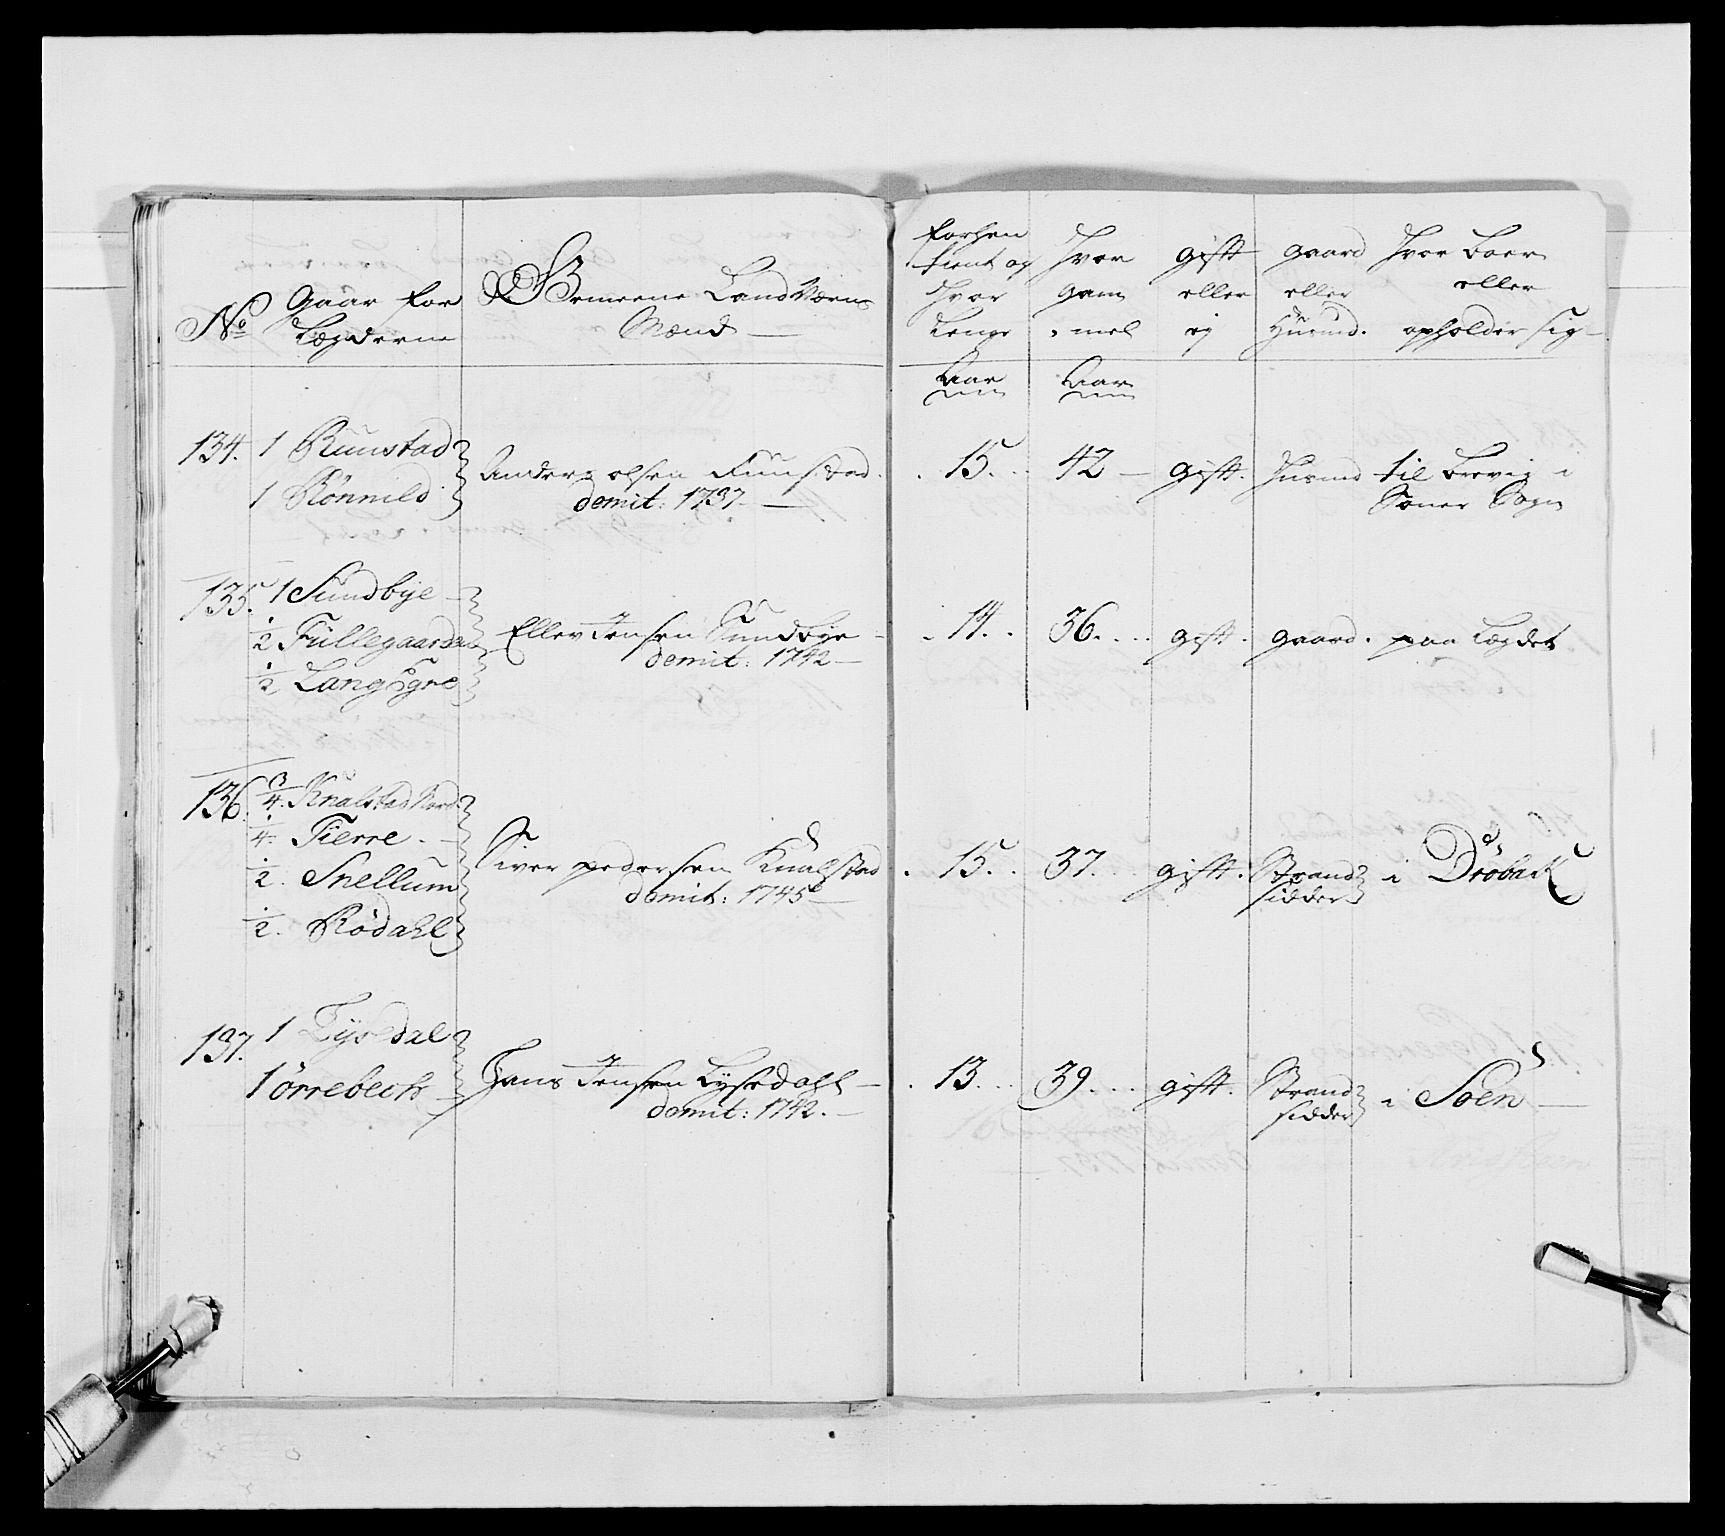 No
Gaar for
Lægderne
Gemeene Land Værns
Mænd
forhen
tient og
Hvor
Lenge
Hvor
gam
mel
gift
eller
ej
gaard
eller
Husmd.
Hvor boer
eller
opholder sig
Aar
Aar
134. 1 Ruustad
1 Rönnild
Anders olsen Ruustad
demit: 1737
15. 42 gift. Husmd til Brevig i
Soner Sogn
135. 1 Sundbÿe
1/2 Füllegaarden
1/2 Lang Ÿgne
Ellev Jensen Sundbye
demit: 1742
14. 36. gift. gaard. paa Lægdet
136. 3/4. Knalstad Nord
1/4. Tierre.
1/2. Snellum
1/2. Rödahl
Siver pedersen Knalstad
demit: 1745
15. 37. gift. Strand
sidder i Dröbak
137. 1 Lÿsedal
1 örrebech
Hans Jensen Lÿsedahl
demit: 1742.
13. 39. gift. Strand
sidder i Soen